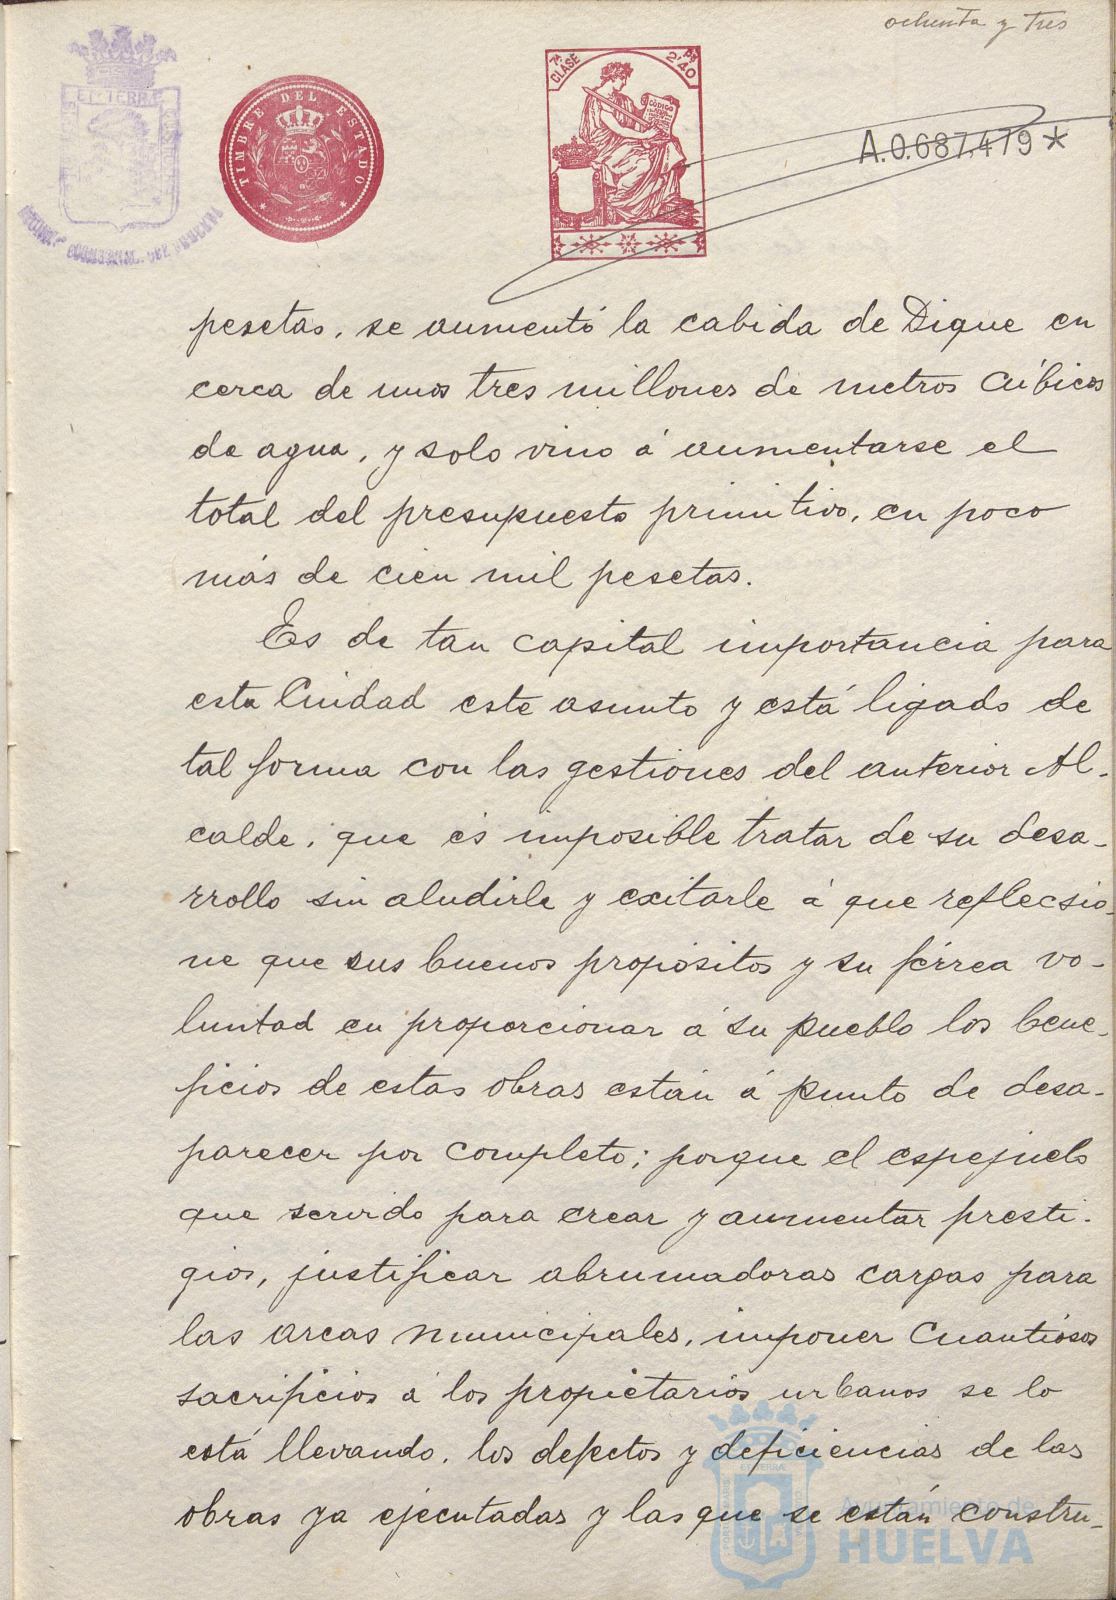 ochenta y tres
TIMBRE DEL ESTADO
7ª CLASE
2'40
CÓDIGO
A.0.687,479*
pesetas, se aumentó la cabida de Dique en
cerca de unos tres millones de metros cúbicos
de agua, y solo vino á aumentarse el
total del presupuesto primitivo, en poco
más de cien mil pesetas.
Es de tan capital importancia para
esta Ciudad este asunto y está ligado de
tal forma con las gestiones del anterior Al-
calde, que és imposible tratar de su desa-
rrollo sin aludirle y exitarle á que reflecsio-
ne que sus buenos propósitos y su férrea vo-
luntad en proporcionar á su pueblo los bene-
ficios de estas obras están á punto de desa-
parecer por completo; porque el espejuelo
que servido para crear y aumentar presti-
gios, justificar abrumadoras cargas para
las arcas municipales, imponer cuantiosos
sacrificios á los propietarios urbanos se lo
está llevando, los defectos y deficiencias de las
obras ya ejecutadas y las que se están constru-
Ayuntamiento de
HUELVA